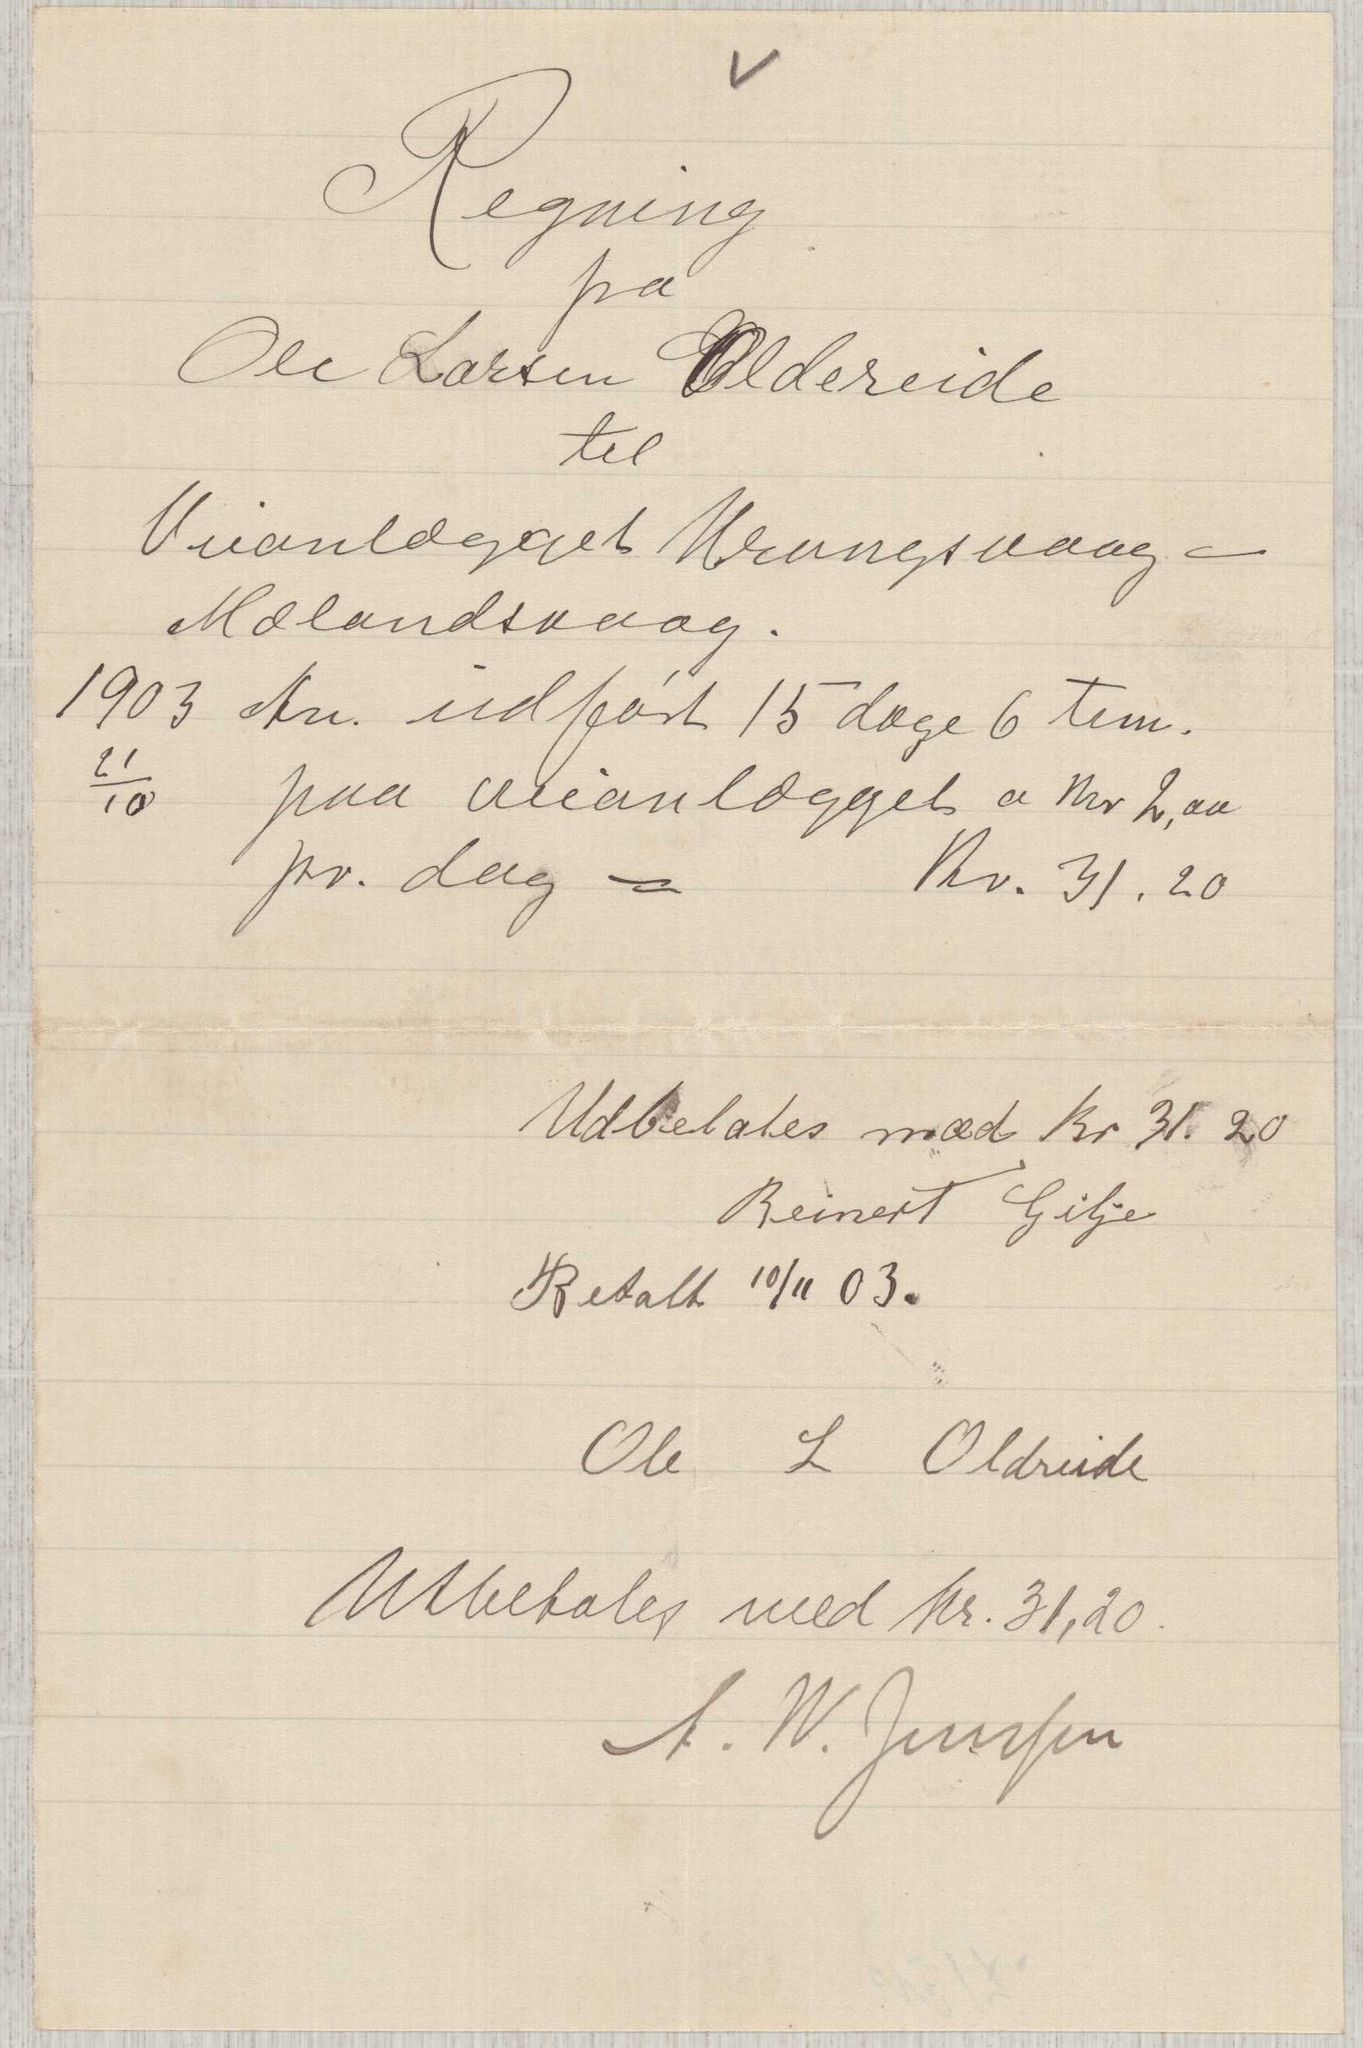 Regning
fra
Ole Larsen Oldereide
til
Veianlægget Urangsvaag -
Mælandsvaag.
1903 An. udført 15 dage 6 tim.
21/10 paa veianlægget a Kr 2,00
pr. dag = Kr. 31.20
Udbetales med Kr 31.20
Reinert Gilje
Betalt 10/11 03.
Ole L Oldreide
Utbetales med Kr. 31,20.
A. W. Jenssen